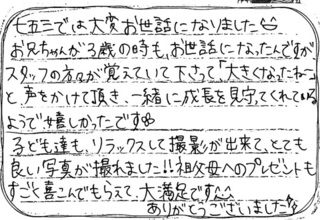 七五三では大変お世話になりました
お兄ちゃんが3歳の時も、お世話になったんですが
スタッフの方々が覚えていて下さって「大きくなったねー」
と、声をかけて頂き、一緒に成長を見守ってくれている
ようで嬉しかったです
子ども達も、リラックスして撮影が出来て、とても
良い写真が撮れました!!祖父母へのプレゼントも
すごく喜こんでもらえて、大満足です
ありがとうございました